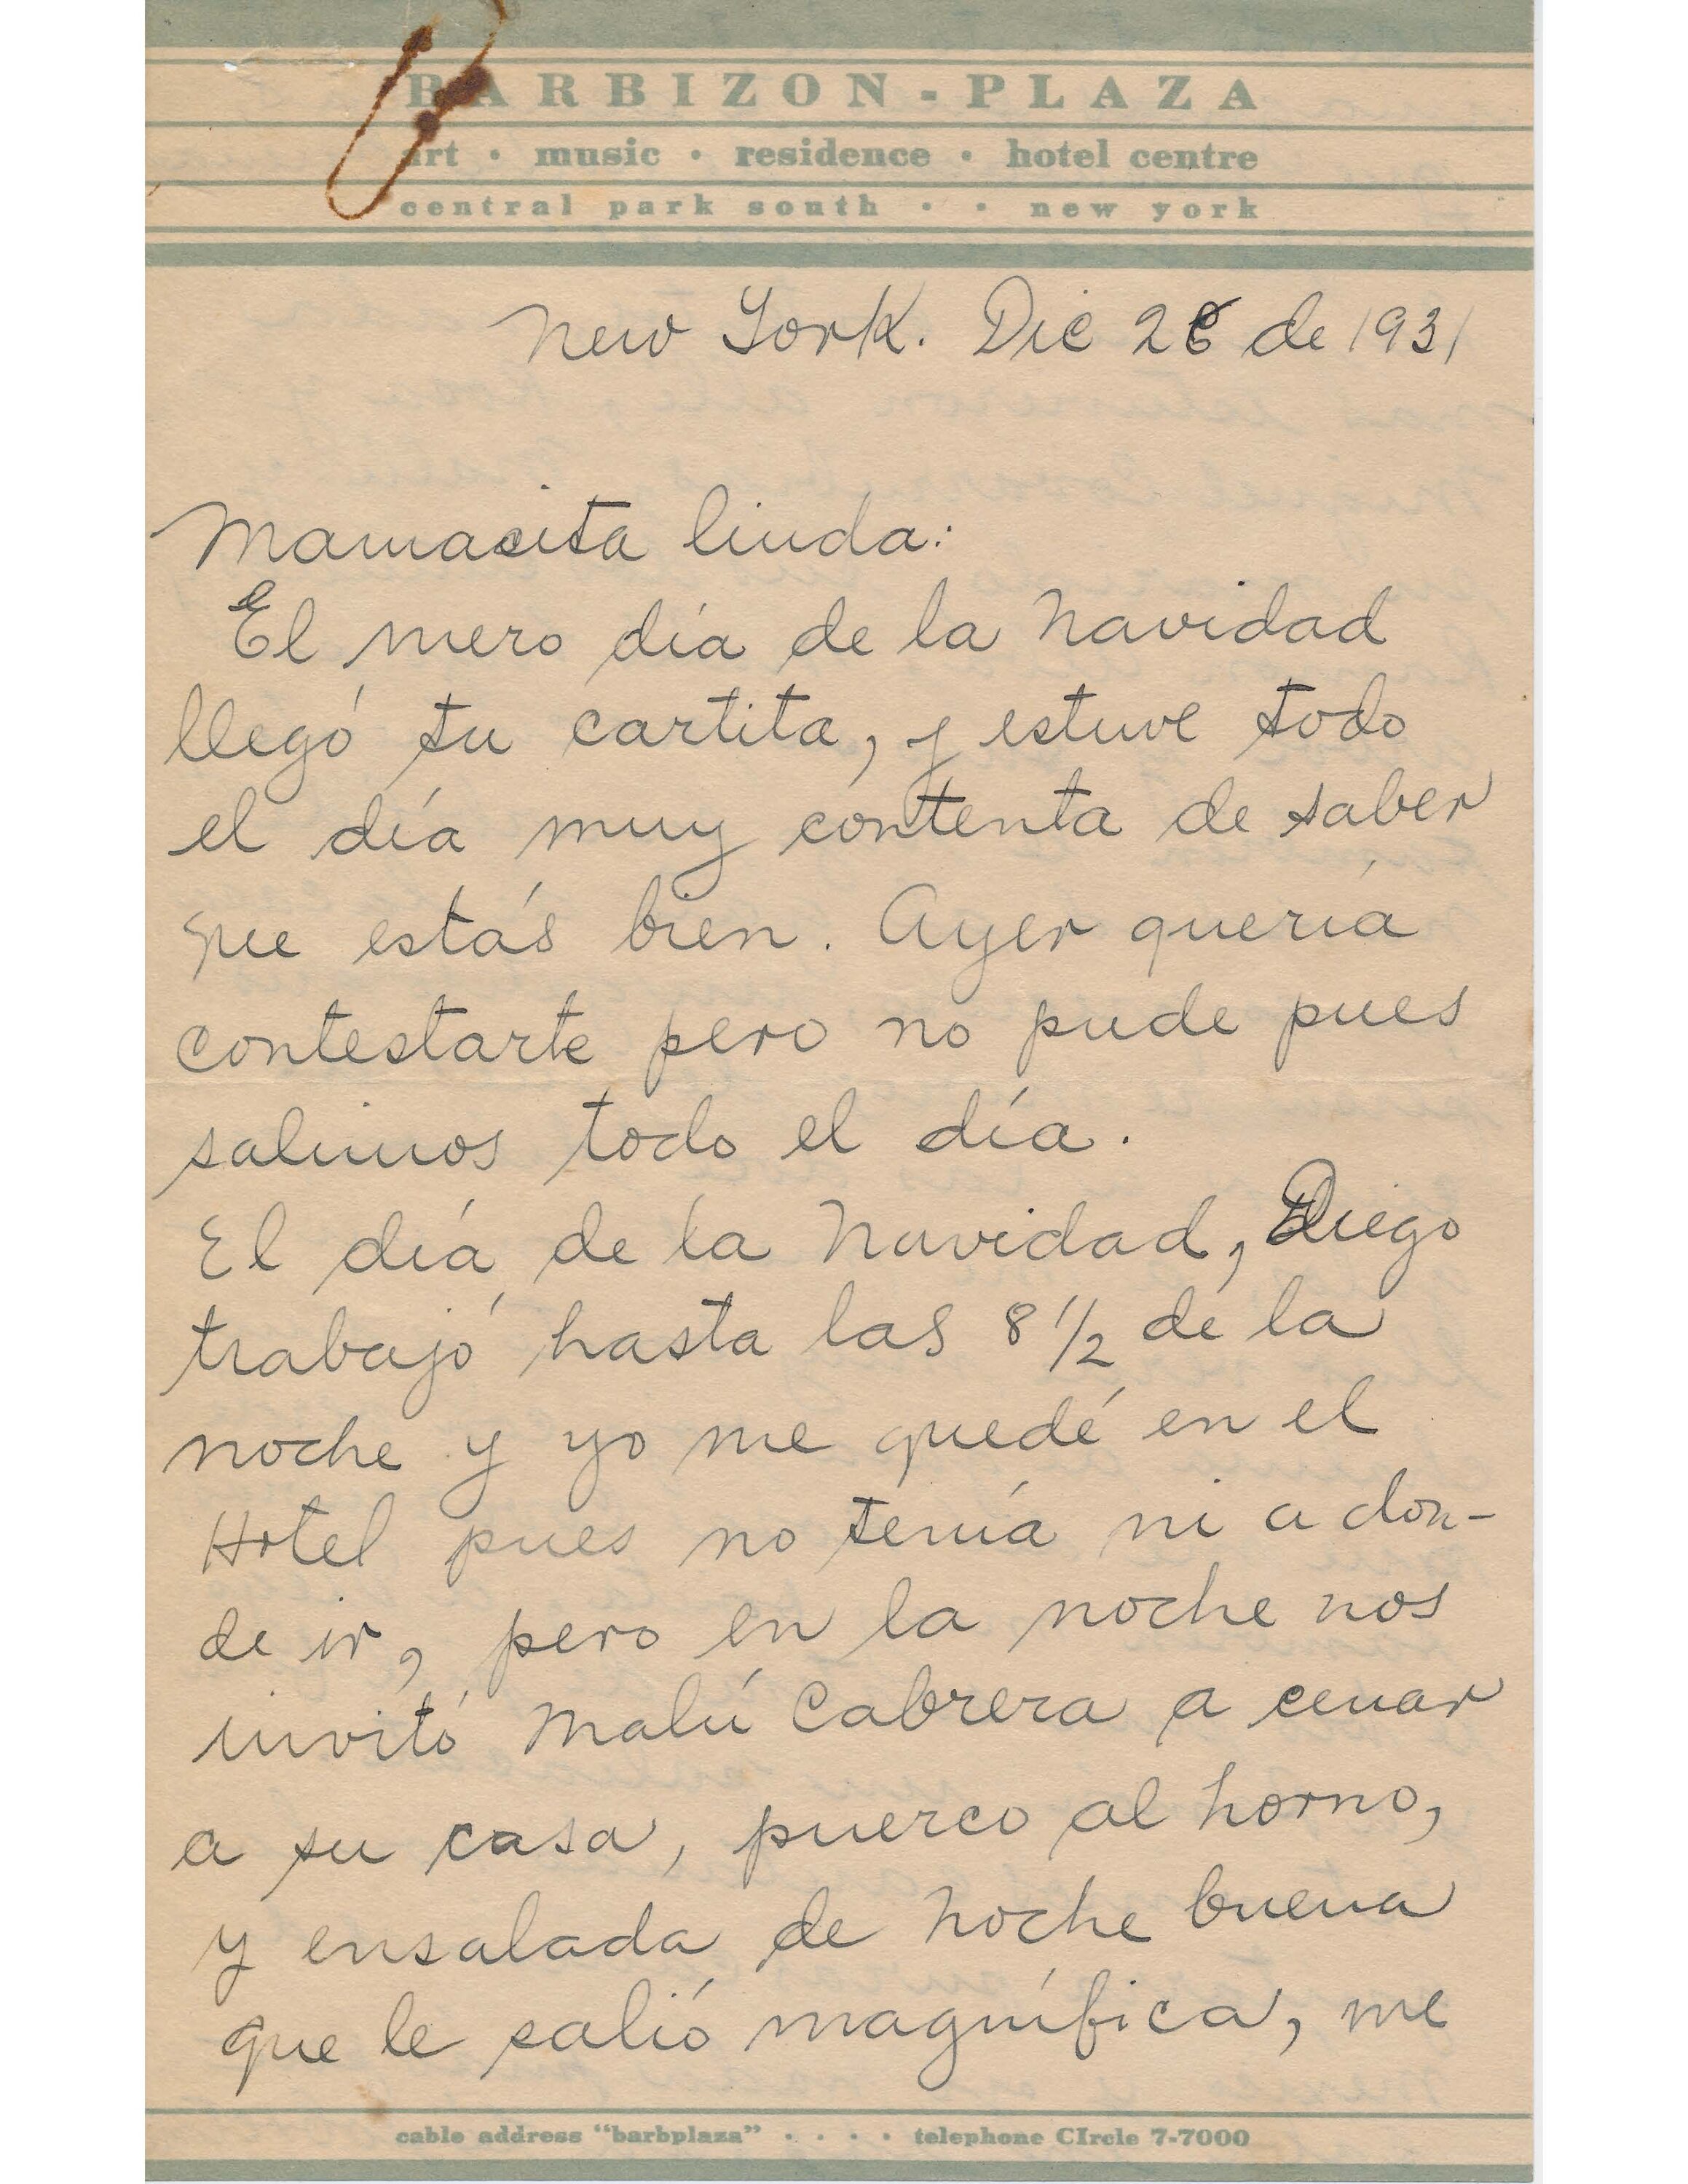 BARBIZON-PLAZA
art • music • residence • hotel centre
central park south • • new york
New York. Dic 26 de 1931
Mamacita linda:
El mero día de la Navidad
llegó tu cartita, y estuve todo
el día muy contenta de saber
que estás bien. Ayer quería
contestarte pero no pude pues
salimos todo el día.
El día de la Navidad, Diego
trabajó hasta las 8 1/2 de la
noche y yo me quedé en el
Hotel pues no tenía ni a don-
de ir, pero en la noche nos
invitó Malú Cabrera a cenar
a su casa, puerco al horno,
y ensalada de noche buena
que le salió magnífica, me
cable address "barbplaza" • • • • telephone CIrcle 7-7000